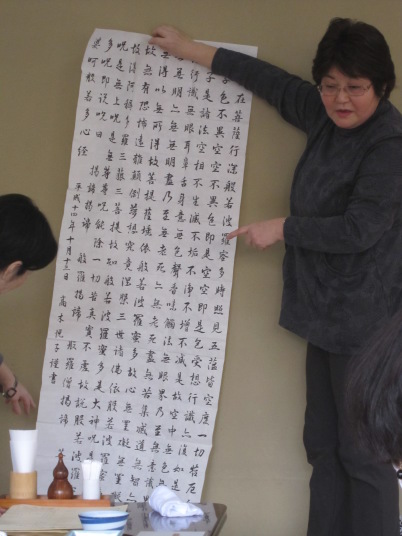 在菩薩行深般若波羅蜜多時照見五蘊皆空度一切
子色不異空空不異色色即是空空即是色受想行識亦復如是
子是諸法空相不生不滅不垢不淨不增不減是故空中
行識無眼耳鼻舌身意無色聲香味觸法無眼界乃至無意識
無明亦無無明盡乃至無老死亦無老死盡無苦集滅道無智
無得以無所得故菩提薩埵依般若波羅蜜多故心無罣礙無罣
故無有恐怖遠離顛倒夢想究竟涅槃三世諸佛依般若波羅
故得阿耨多羅三藐三菩提故知般若波羅蜜多是大神呪
呪是無上呪是無等等呪能除一切苦真實不虚故説般若波羅
多呪即説呪曰 揭諦揭諦 般羅揭諦 般羅僧揭諦
般若多心経
平成十四年十月十三日 高木悦子謹書